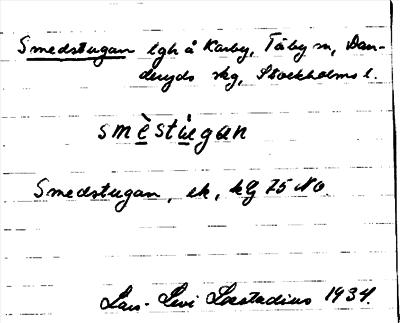 Smedstugan lgh å Karby, Täby sn, Dan-
deryds skg, Stockholms l.
smèstùgan
Smedstugan, ek, kg 75 NO.
Lars-Levi Læstadius 1934.